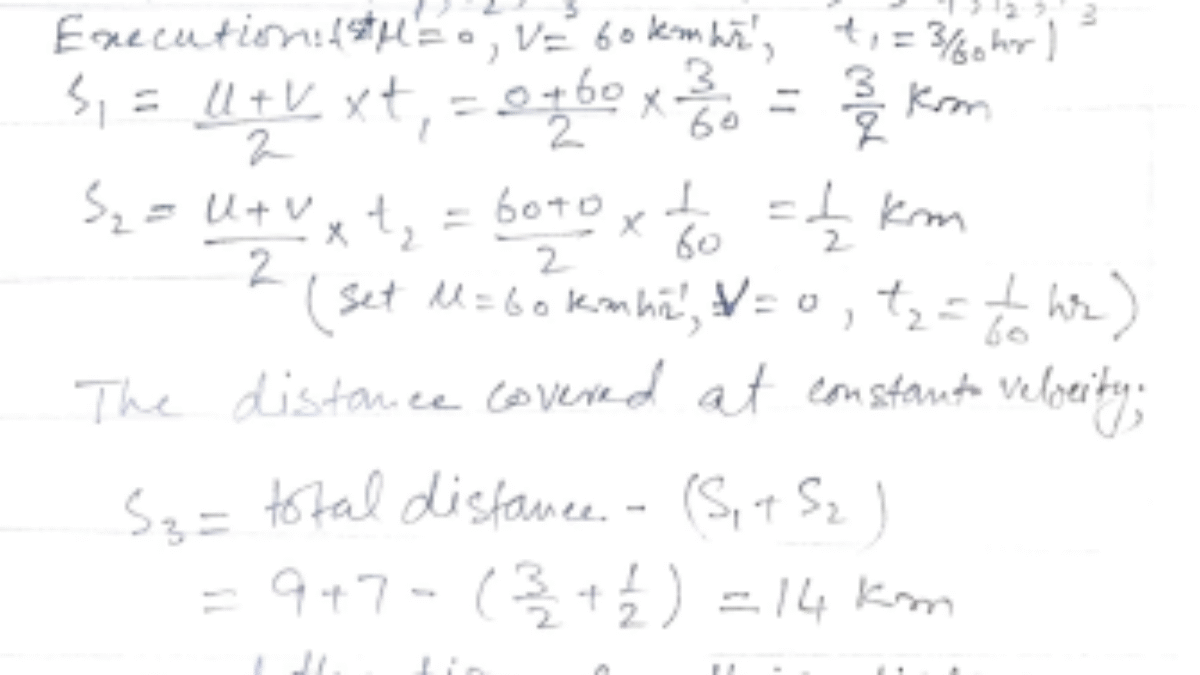 Execution: (set u = 0, V = 60 km hr⁻¹, t₁ = 3/60 hr)
S₁ = (u+V)/2 × t₁ = (0+60)/2 × 3/60 = 3/2 Km
S₂ = (u+V)/2 × t₂ = (60+0)/2 × 1/60 = 1/2 Km
(set u = 60 km hr⁻¹, V = 0, t₂ = 1/60 hr)
The distance covered at constant velocity;
S₃ = total distance - (S₁ + S₂)
= 9+7 - (3/2 + 1/2) = 14 Km